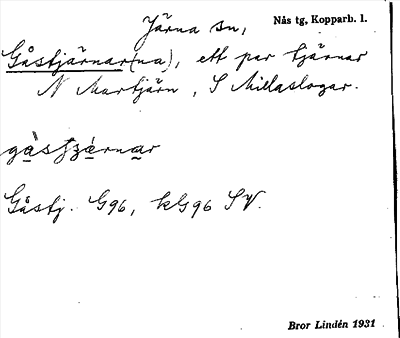 Järna sn, Nås tg, Kopparb. l.
Gåstjärnar(na), ett par tjärnar
N Murtjärn, S Millaslogar.
gåstjärnar
Gåstj. G96, kG96 SV.
Bror Lindén 1931